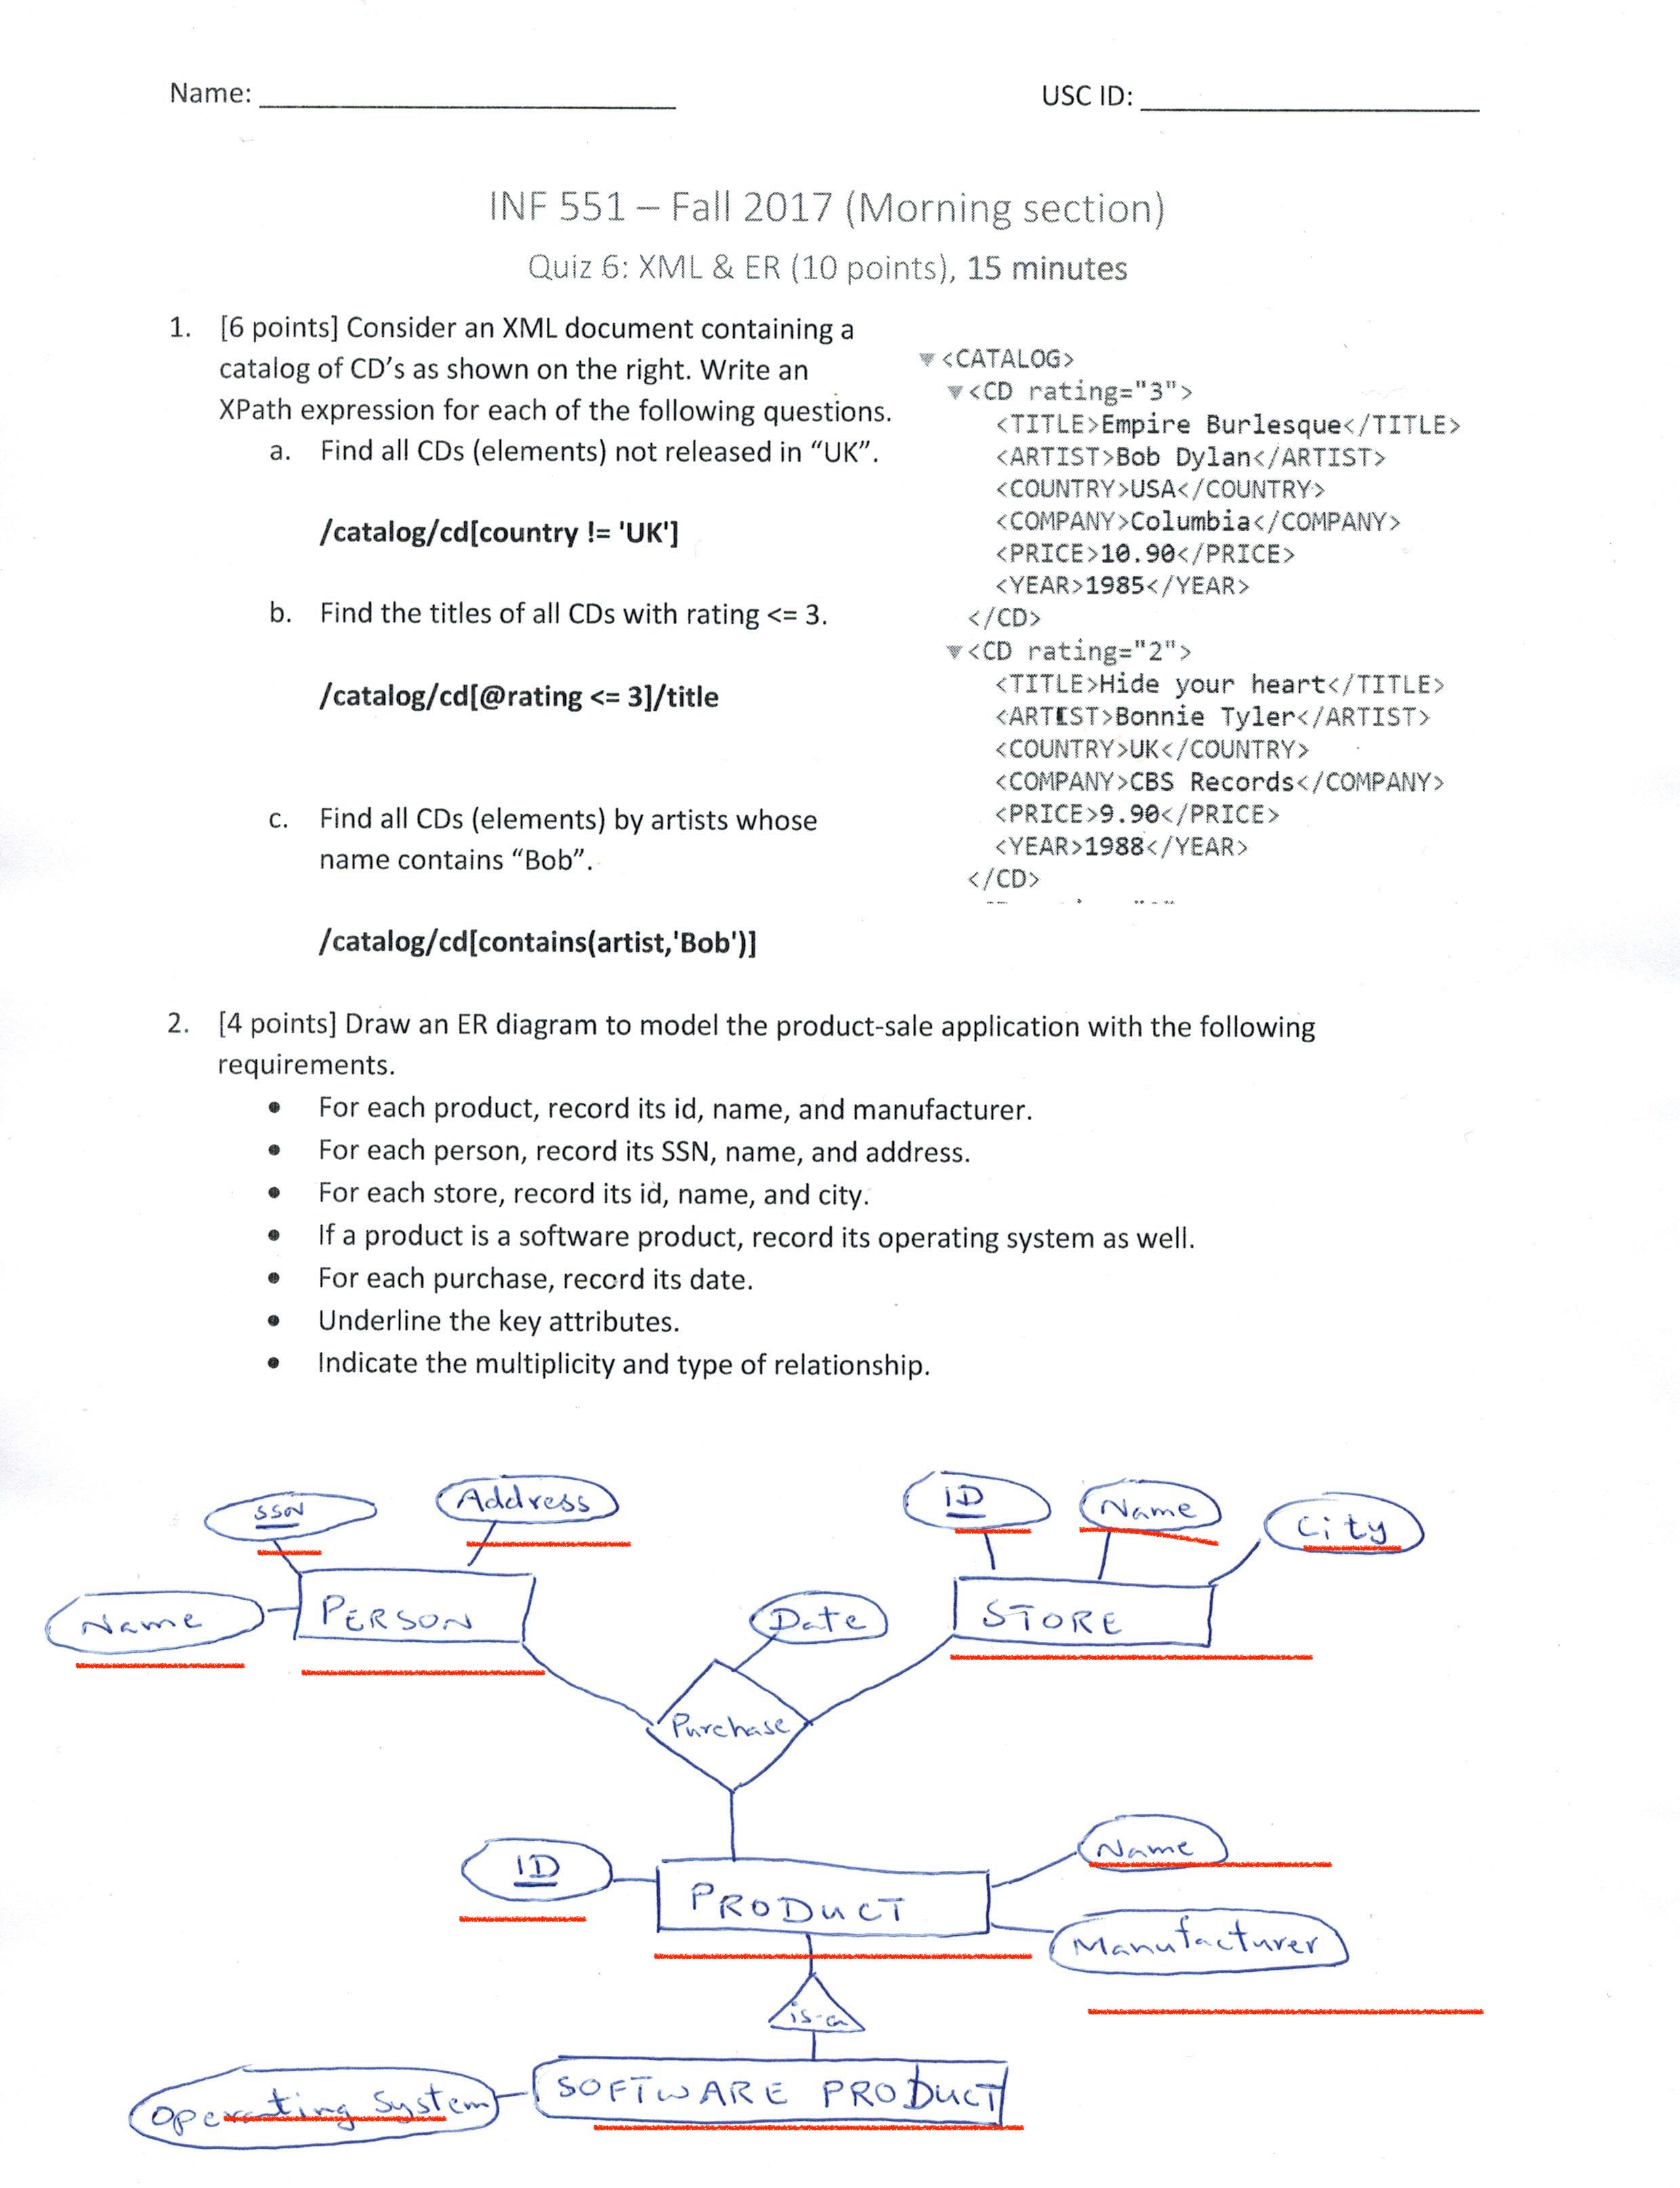 Name:
USC ID:
INF 551 – Fall 2017 (Morning section)
Quiz 6: XML & ER (10 points), 15 minutes
1. [6 points] Consider an XML document containing a
catalog of CD’s as shown on the right. Write an
XPath expression for each of the following questions.
a. Find all CDs (elements) not released in “UK”.
/catalog/cd[country != 'UK']
b. Find the titles of all CDs with rating <= 3.
/catalog/cd[@rating <= 3]/title
c. Find all CDs (elements) by artists whose
name contains “Bob”.
/catalog/cd[contains(artist,'Bob')]
<CATALOG>
<CD rating="3">
<TITLE>Empire Burlesque</TITLE>
<ARTIST>Bob Dylan</ARTIST>
<COUNTRY>USA</COUNTRY>
<COMPANY>Columbia</COMPANY>
<PRICE>10.90</PRICE>
<YEAR>1985</YEAR>
</CD>
<CD rating="2">
<TITLE>Hide your heart</TITLE>
<ARTIST>Bonnie Tyler</ARTIST>
<COUNTRY>UK</COUNTRY>
<COMPANY>CBS Records</COMPANY>
<PRICE>9.90</PRICE>
<YEAR>1988</YEAR>
</CD>
2. [4 points] Draw an ER diagram to model the product-sale application with the following
requirements.
• For each product, record its id, name, and manufacturer.
• For each person, record its SSN, name, and address.
• For each store, record its id, name, and city.
• If a product is a software product, record its operating system as well.
• For each purchase, record its date.
• Underline the key attributes.
• Indicate the multiplicity and type of relationship.
SSN
Address
ID
Name
City
Name
PERSON
Date
STORE
Purchase
ID
PRODUCT
Name
Manufacturer
is-a
Operating System
SOFTWARE PRODUCT